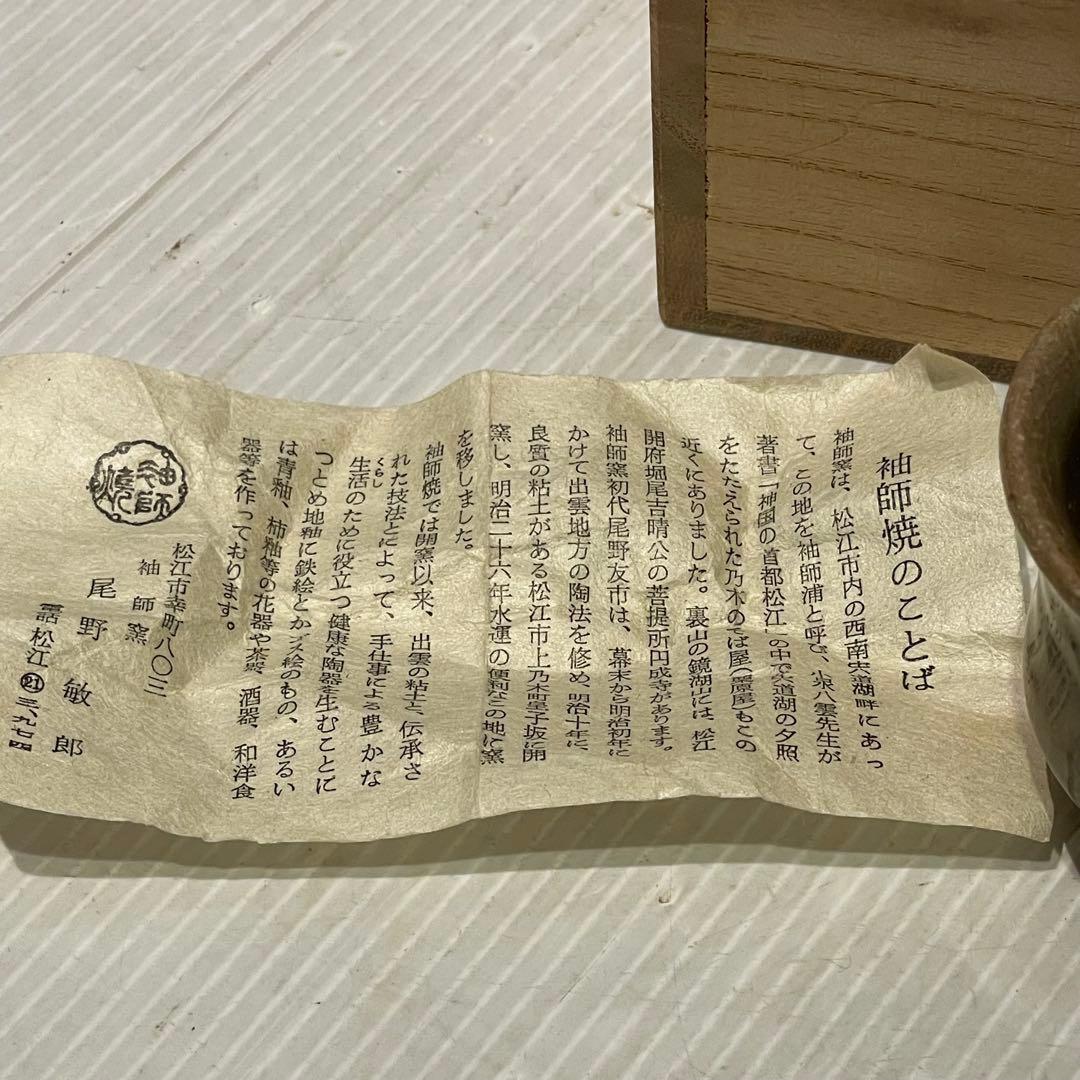 袖師焼のことば
袖師窯は、松江市内の西南宍道湖畔にあっ
て、この地を袖師浦と呼び、小泉八雲先生が
著書「神国の首都松江」の中で宍道湖の夕照
をたたえられた乃木のそば屋もこの
近くにありました。裏山の鏡湖山には、松江
開府堀尾吉晴公の菩提所円成寺があります。
袖師窯初代尾野友市は、幕末から明治初年に
かけて出雲地方の陶法を修め、明治十年に、
良質の粘土がある松江市上乃木町皇子坂に開
窯し、明治二十六年水運の便利なこの地に窯
を移しました。
袖師焼では開窯以来、出雲の粘土と、伝承さ
れた技法とによって、手仕事による豊かな
生活のために役立つ健康な陶器を生むことに
くらし
つとめ地釉に鉄絵とかゴス絵のもの、あるい
は青釉、柿釉等の花器や茶器、酒器、和洋食
器等を作っております。
袖師焼
松江市幸町八〇三
袖師窯
尾野敏郎
電話松江㉑三九七四